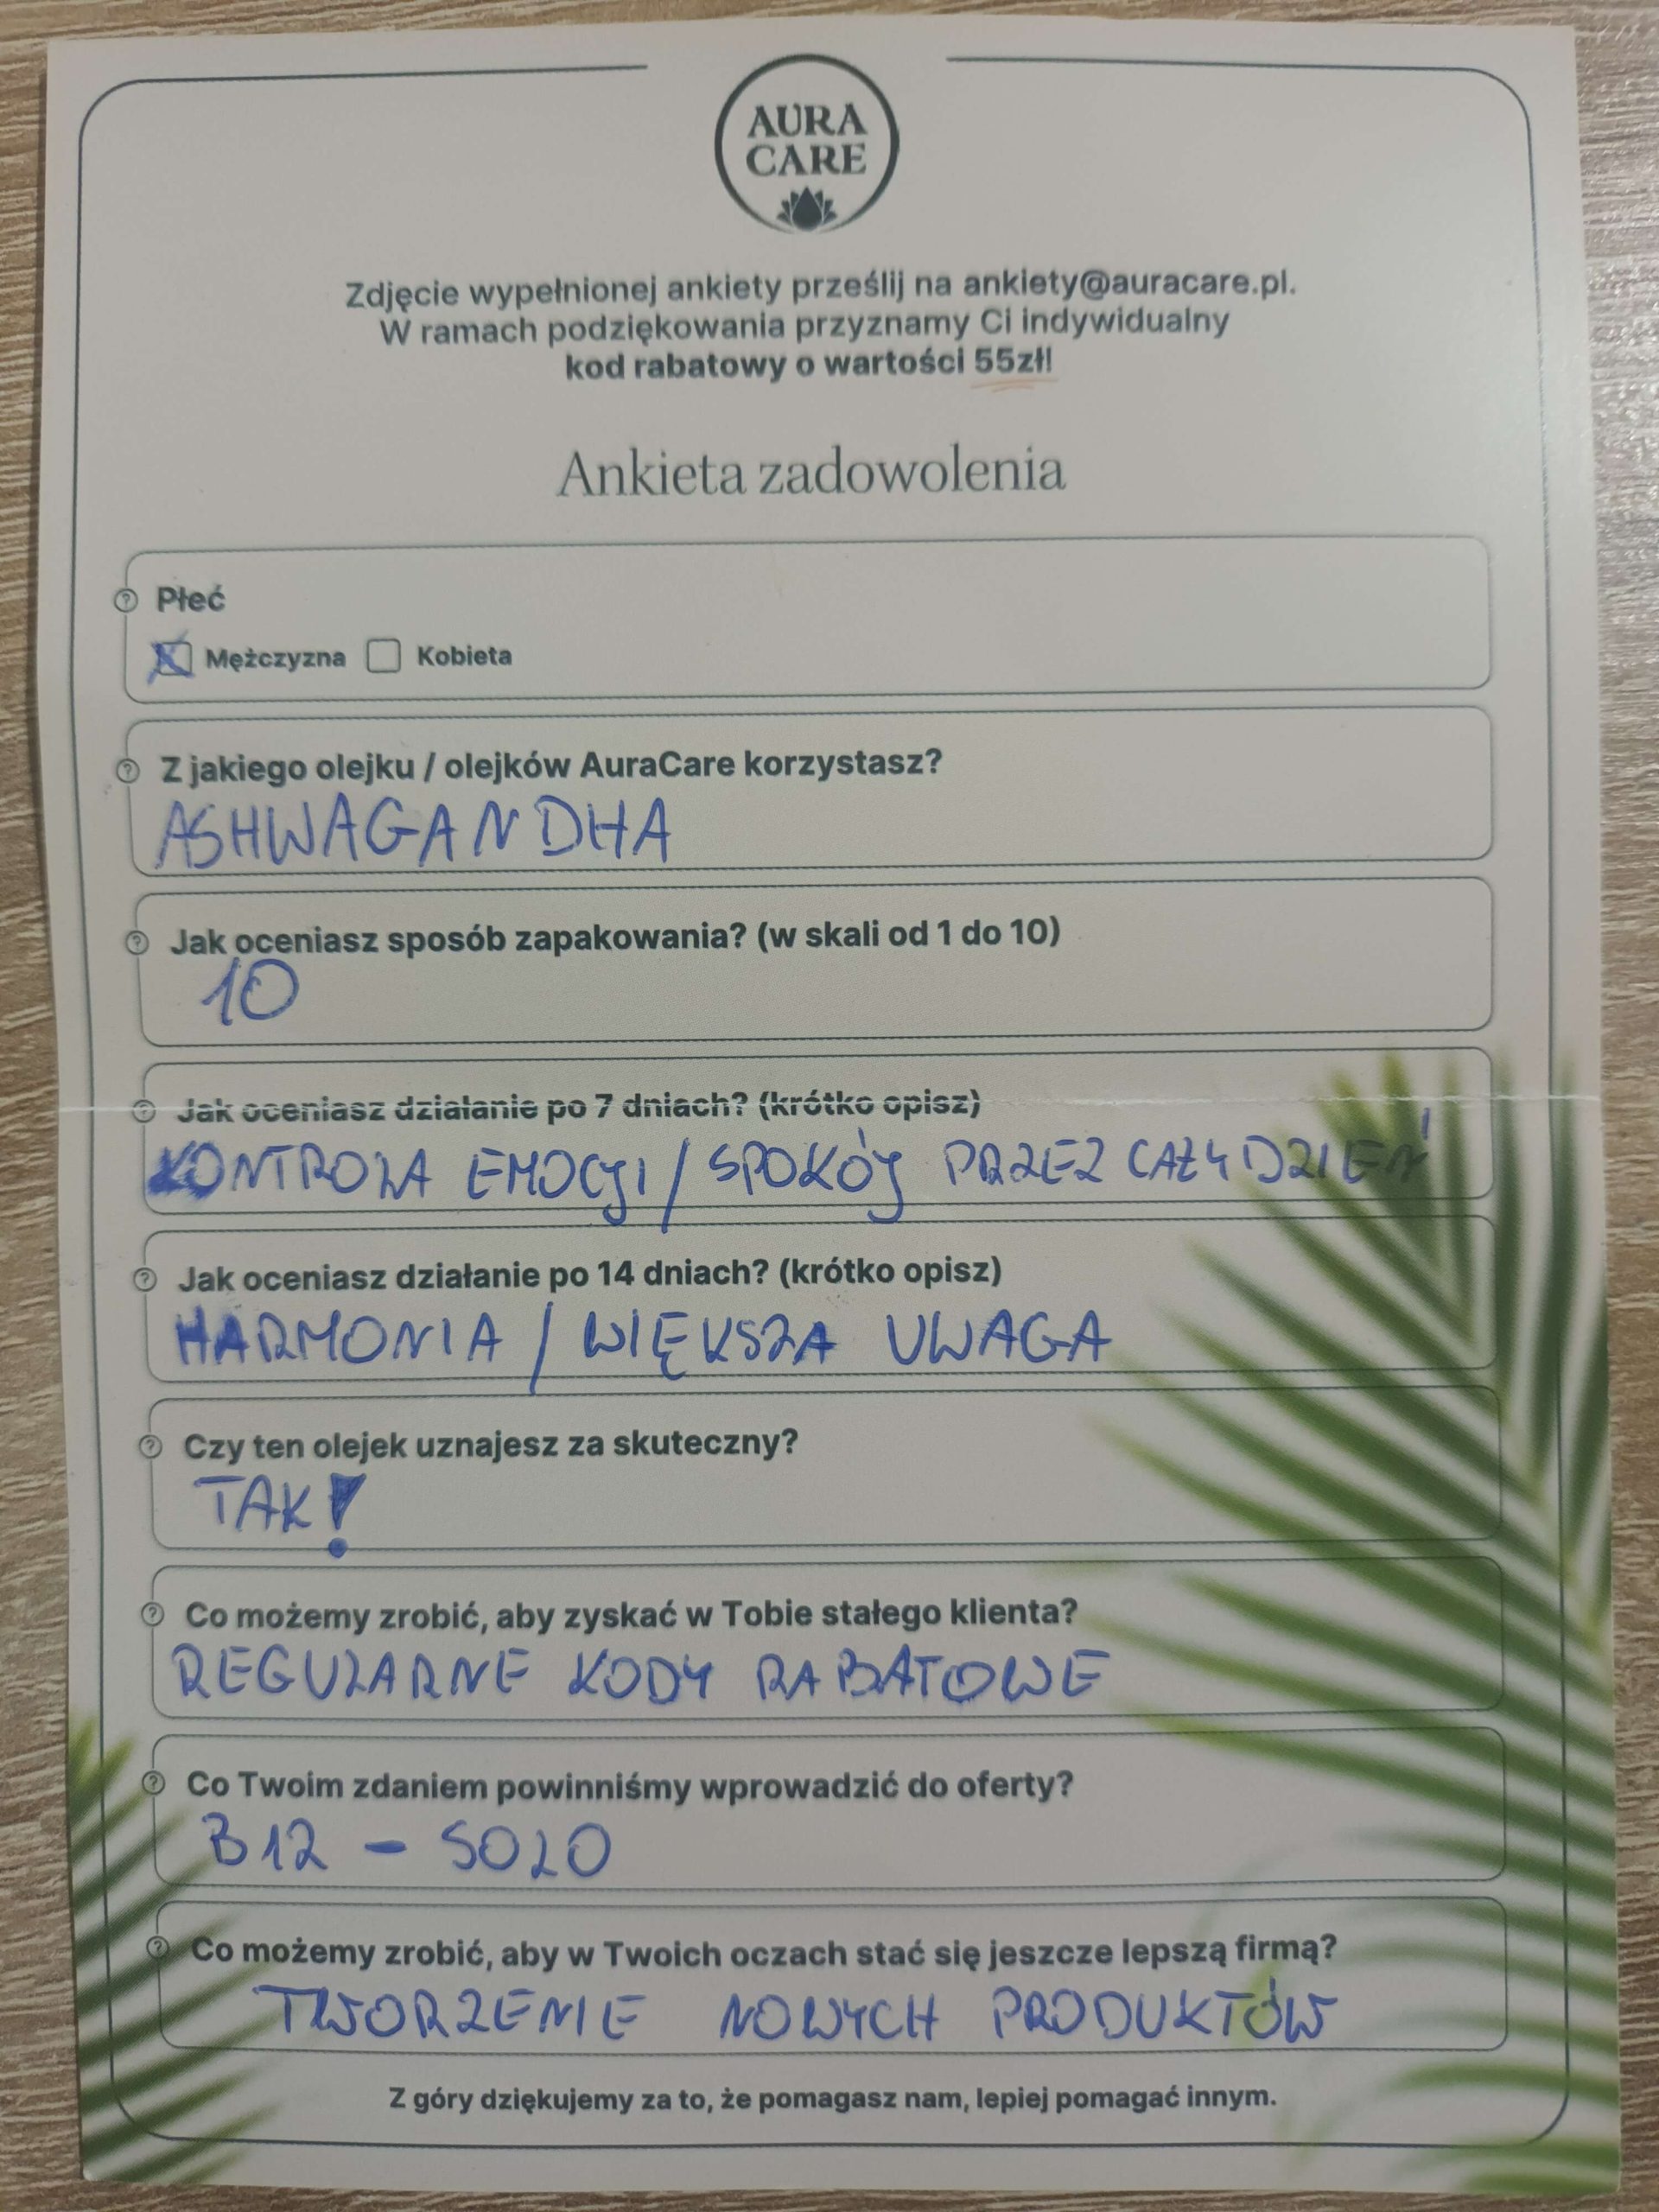 AURA
CARE
Zdjęcie wypełnionej ankiety prześlij na ankiety@auracare.pl.
W ramach podziękowania przyznamy Ci indywidualny
kod rabatowy o wartości 55zł!
Ankieta zadowolenia
Płeć
Mężczyzna Kobieta
Z jakiego olejku / olejków AuraCare korzystasz?
ASHWAGANDHA
Jak oceniasz sposób zapakowania? (w skali od 1 do 10)
10
Jak oceniasz działanie po 7 dniach? (krótko opisz)
KONTROLA EMOCJI / SPOKÓJ PRZEZ CAŁY DZIEŃ
Jak oceniasz działanie po 14 dniach? (krótko opisz)
HARMONIA / WIĘKSZA UWAGA
Czy ten olejek uznajesz za skuteczny?
TAK!
Co możemy zrobić, aby zyskać w Tobie stałego klienta?
REGULARNE KODY RABATOWE
Co Twoim zdaniem powinniśmy wprowadzić do oferty?
B12 - SOLO
Co możemy zrobić, aby w Twoich oczach stać się jeszcze lepszą firmą?
TWORZENIE NOWYCH PRODUKTÓW
Z góry dziękujemy za to, że pomagasz nam, lepiej pomagać innym.